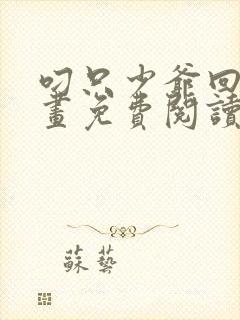 叼只少爺回
畫免費閱讀
蘇藝